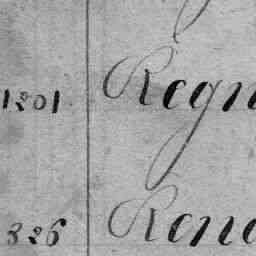 1201 Regn
326 Rena